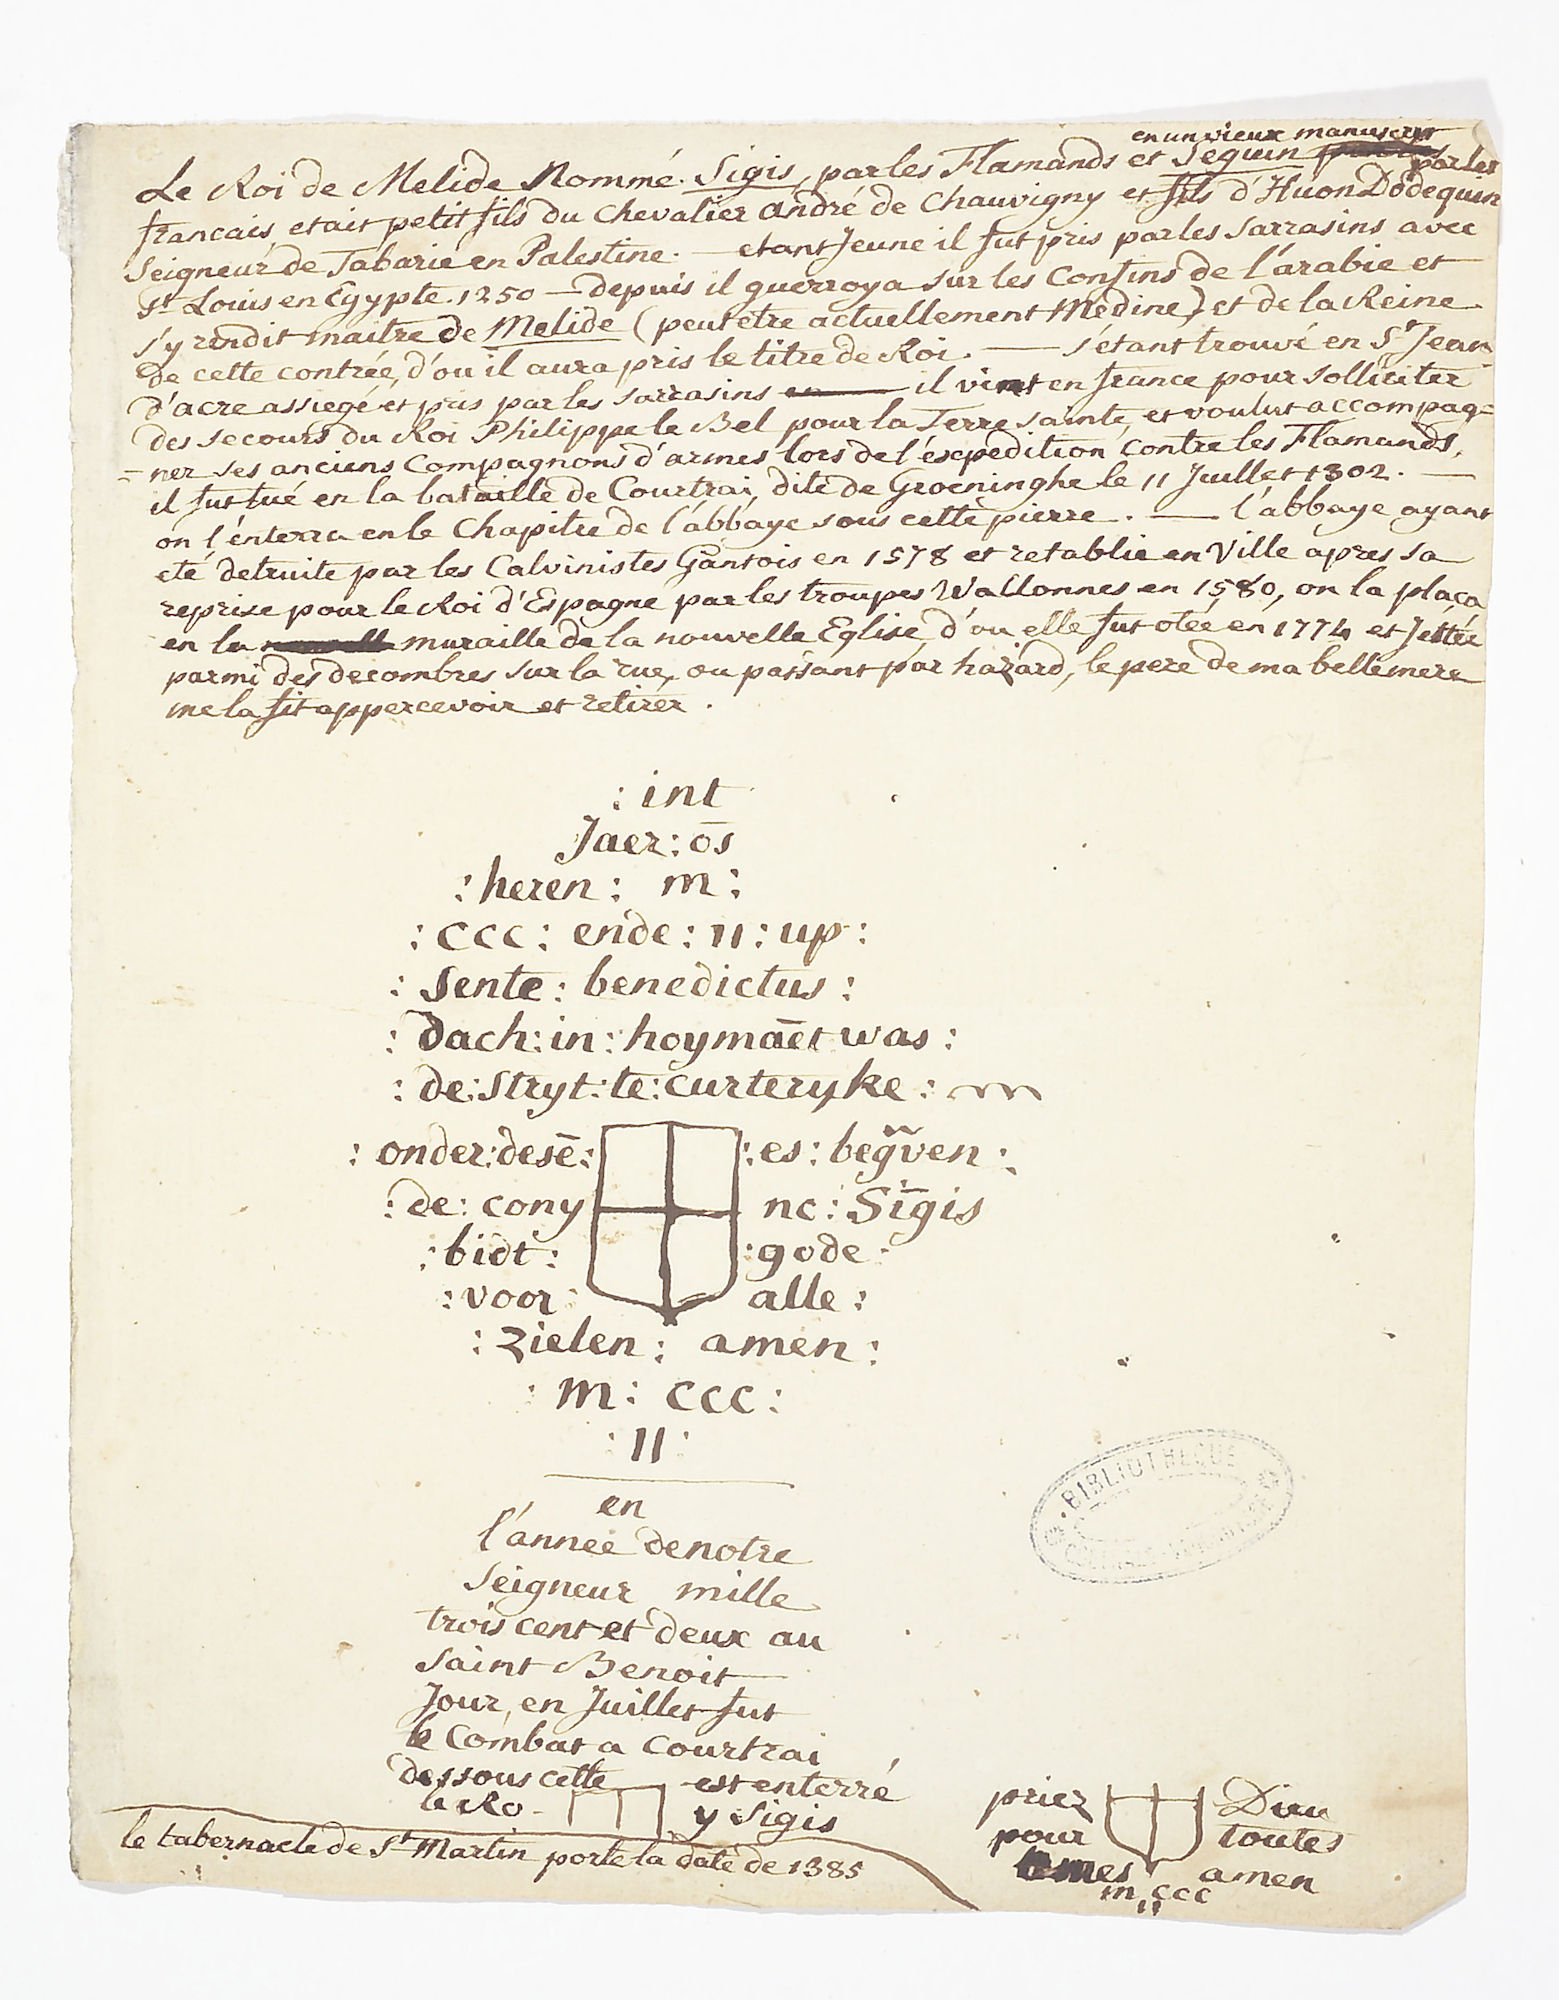 en un vieux manuscrit
Le Roi de Melide Nommé Sigis, par les Flamands et Seguin par les
francais etait petit fils du chevalier andré de Chauvigny et fils d'Huon Dodequin
Seigneur de Tabarie en Palestine. — etant Jeune il fut pris par les Sarrasins avec
St Louis en Egypte. 1250 — depuis il guerroya sur les Confins de l'arabie et
s'y rendit maitre de Melide (peut etre actuellement Medine) et de la Reine
de cette contrée, d'ou il aura pris le titre de Roi. — s'étant trouvé en St Jean
d'acre assiegé et pris par les sarrasins il vint en france pour solliciter
des secours du Roi Philippe le Bel pour la Terre sainte, et voulut accompag=
=ner ses anciens Compagnons d'armes lors de l'éxpedition contre les Flamands,
il fut tué en la bataille de Courtrai, dite de Groeninghe le 11 Juillet 1302. —
on l'énterra en le Chapitre de l'abbaye sous cette pierre. — l'abbaye ayant
eté detruite par les Calvinistes Gantois en 1578 et retablie en Ville apres sa
reprise pour le Roi d'Espagne par les troupes Wallonnes en 1580, on la plaça
en la muraille de la nouvelle Eglise, d'ou elle fut otée en 1774 et Jettée
parmi des decombres sur la rue, ou passant par hazard, le pere de ma belle mere
me la fit appercevoir et retirer.
: int
Jaer : ōs
: heren : m :
: ccc : ende : II : up :
: Sente : benedictus :
: dach : in : hoymāet was :
: de : Stryt : te : curteryke :
: onder : desē : : es : beg̃ven :
: de : cony nc : Sīgis
: bidt : : gode :
: voor : alle :
: zielen : amen :
: m : ccc :
: II :
en
l'année de notre
Seigneur mille
trois cent et deux au
Saint Benoit
Jour, en Juillet fut
le Combat a Courtrai
dessous cette est enterré
le Ro- y Sigis
priez Dieu
pour toutes
ames amen
m ccc
II
le tabernacle de St Martin porte la date de 1385
BIBLIOTHEQUE